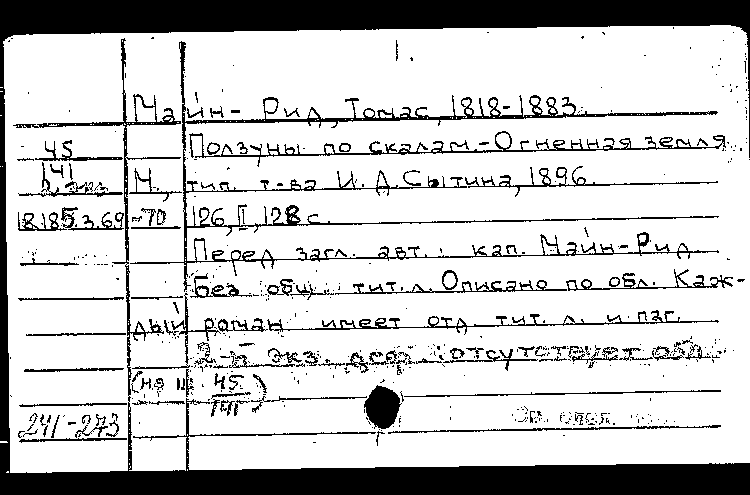 1.
Майн-Рид, Томас, 1818-1883.
45 Ползуны по скалам.-Огненная земля
141
2 экз М., тип. т-ва И.Д.Сытина, 1896.
18.185.3.69-70 126, II, 128 с.
Перед загл. авт.: кап. Майн-Рид
Без общ. тит.л. Описано по обл. Каж-
дый роман имеет отд. тит. л. и паг.
2-й экз. деф.: отсутствует обл.
(на ш. 45
141)
241-273